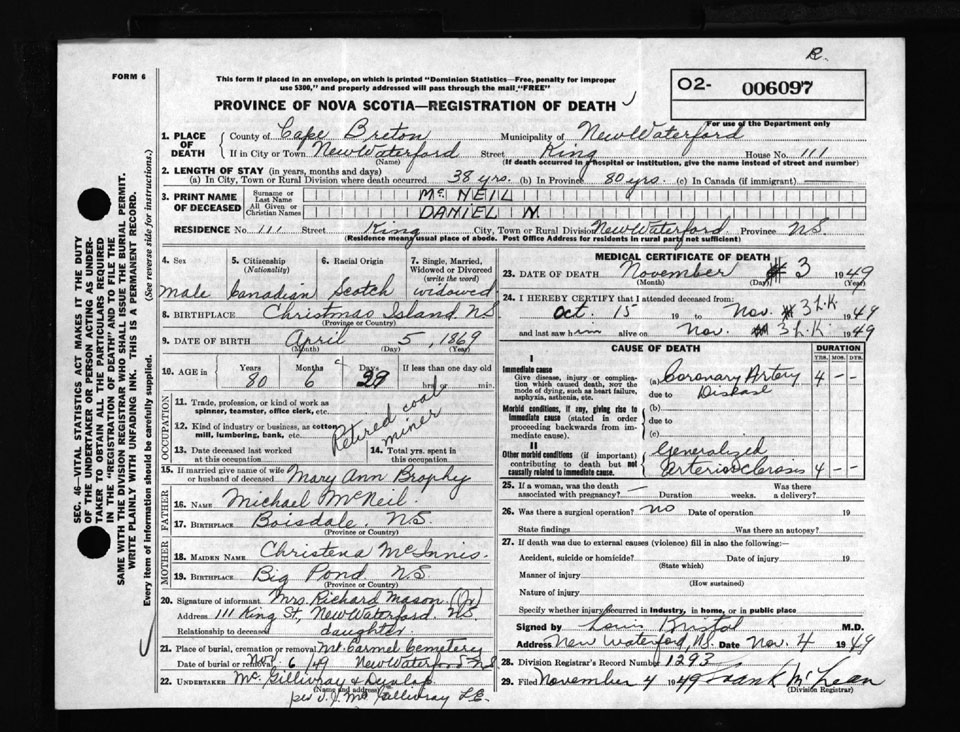 R.
FORM 6
This form if placed in an envelope, on which is printed "Dominion Statistics—Free, penalty for improper
use $300," and properly addressed will pass through the mail "FREE"
O2- 006097
For use of the Department only
PROVINCE OF NOVA SCOTIA—REGISTRATION OF DEATH
SEC. 46—VITAL STATISTICS ACT MAKES IT THE DUTY
OF THE UNDERTAKER OR PERSON ACTING AS UNDER-
TAKER TO OBTAIN ALL THE PARTICULARS REQUIRED
IN THE "REGISTRATION OF DEATH" AND TO FILE THE
SAME WITH THE DIVISION REGISTRAR WHO SHALL ISSUE THE BURIAL PERMIT.
WRITE PLAINLY WITH UNFADING INK. THIS IS A PERMANENT RECORD.
Every item of information should be carefully supplied. (See reverse side for instructions.)
1. PLACE OF DEATH County of Cape Breton Municipality of New Waterford
If in City or Town New Waterford Street King House No. 111
(Name) (If death occurred in a hospital or institution, give the name instead of street and number)
2. LENGTH OF STAY (in years, months and days)
(a) In City, Town or Rural Division where death occurred 38 yrs. (b) In Province 80 yrs. (c) In Canada (if immigrant)
3. PRINT NAME OF DECEASED Surname or Last Name McNEIL
All Given or Christian Names DANIEL N
RESIDENCE No. 111 Street King City, Town or Rural Division New Waterford Province N.S
(Residence means usual place of abode. Post Office Address for residents in rural parts not sufficient)
4. Sex 5. Citizenship (Nationality) 6. Racial Origin 7. Single, Married, Widowed or Divorced (write the word)
male Canadian Scotch widowed
8. BIRTHPLACE Christmas Island, N.S
(Province or Country)
9. DATE OF BIRTH April 5, 1869
(Month) (Day) (Year)
10. AGE in Years Months Days If less than one day old
80 6 29 hrs. or min.
OCCUPATION
11. Trade, profession, or kind of work as
spinner, teamster, office clerk, etc.
12. Kind of industry or business, as cotton
mill, lumbering, bank, etc.
Retired coal miner
13. Date deceased last worked at this occupation 14. Total yrs. spent in this occupation
15. If married give name of wife or husband of deceased Mary Ann Brophy
FATHER
16. NAME Michael McNeil.
17. BIRTHPLACE Boisdale, N.S.
(Province or Country)
MOTHER
18. MAIDEN NAME Christena McInnis.
19. BIRTHPLACE Big Pond N.S
(Province or Country)
20. Signature of informant Mrs. Richard Mason
Address 111 King St, New Waterford. N.S.
Relationship to deceased daughter
21. Place of burial, cremation or removal Mt. Carmel Cemetery
Date of burial or removal Nov. 6/49 New Waterford N.S
22. UNDERTAKER McGillivray & Dunlop
(Name and address)
MEDICAL CERTIFICATE OF DEATH
23. DATE OF DEATH November 3 1949
(Month) (Day) (Year)
24. I HEREBY CERTIFY that I attended deceased from:
Oct. 15 19 to Nov. 3 1949
and last saw him alive on Nov. 3 1949
CAUSE OF DEATH DURATION
YRS. MOS. DYS.
I
Immediate cause
Give disease, injury or complica-
tion which caused death, NOT the
mode of dying, such as heart failure,
asphyxia, asthenia, etc.
(a) Coronary Artery Disease 4 — —
due to
Morbid conditions, if any, giving rise to
immediate cause (stated in order
proceeding backwards from im-
mediate cause).
(b)
due to
(c)
II
Other morbid conditions (if important)
contributing to death but not
causally related to immediate cause.
Generalized
Arteriosclerosis 4 — —
25. If a woman, was the death associated with pregnancy? — Duration weeks. Was there a delivery?
26. Was there a surgical operation? no Date of operation 19
State findings Was there an autopsy?
27. If death was due to external causes (violence) fill in also the following:—
Accident, suicide or homicide? Date of injury 19
(State which)
Manner of injury
(How sustained)
Nature of injury
Specify whether injury occurred in industry, in home, or in public place
Signed by Louis Bristol M.D.
Address New Waterford, N.S. Date Nov. 4 1949
28. Division Registrar's Record Number 1293
29. Filed November 4 1949 Frank McLean
(Division Registrar)